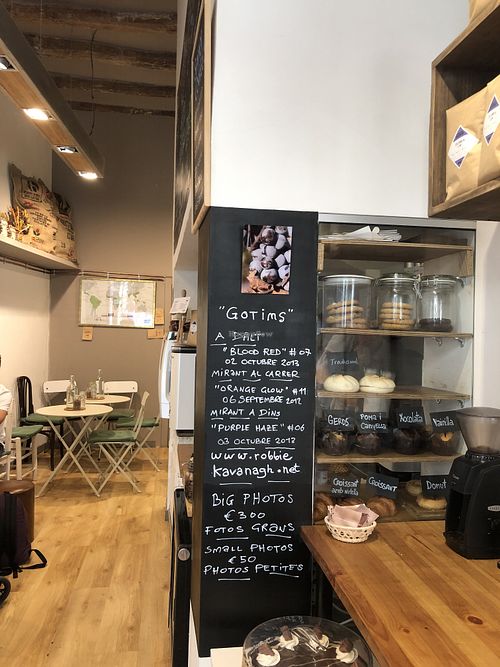 "GOTIMS"
A DALT
"BLOOD RED" #07
02 OCTUBRE 2013
MIRANT AL CARRER
"ORANGE GLOW" #11
06 SEPTEMBRE 2012
MIRANT A DINS
"PURPLE HAZE" #06
03 OCTUBRE 2012
www.robbie
Kavanagh.net
BIG PHOTOS
€300
FOTOS GRANS
SMALL PHOTOS
€50
PHOTOS PETITES
Tradicional
GERDS
POMA i
Canyella
Xocolata
Vainilla
Croissant
CROISSANT
Donut